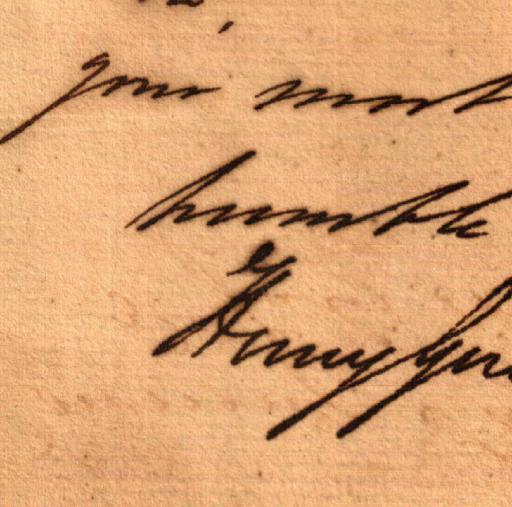 your most
humble
Henry